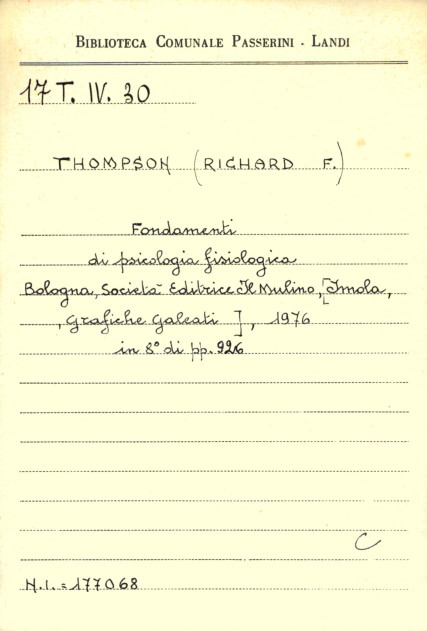 BIBLIOTECA COMUNALE PASSERINI - LANDI
17 T. IV. 30
THOMPSON (RICHARD F.)
Fondamenti
di psicologia fisiologica
Bologna, Società Editrice Il Mulino, [Imola,
, Grafiche Galeati ], 1976
in 8° di pp. 926
C
N.I. = 177068